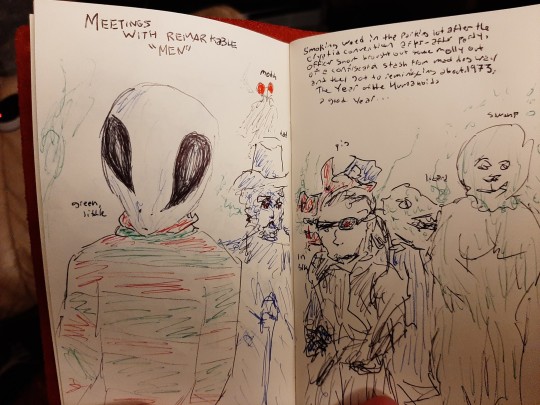 MEETINGS
WITH REMARKABLE
"MEN"
Smoking weed in the parking lot after the
cryptid convention after-after party.
Officer Snort brought out some molly out
of a confiscated stash from
and they got to reminiscing about 1973.
The Year of the Humanoids
a good year...
moth
hat
green, little
pig
in
lizard
swamp